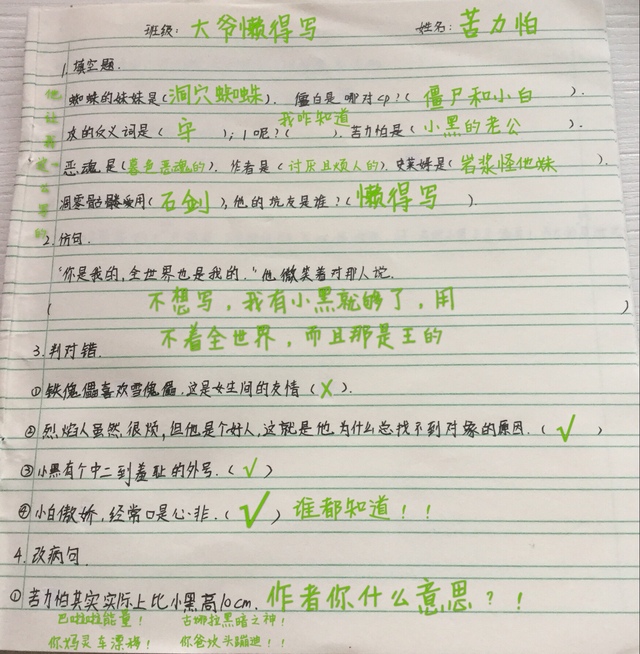 班级：大爷懒得写 姓名：苦力怕
1.填空题.
蜘蛛的妹妹是(洞穴蜘蛛). 僵白是哪对cp?(僵尸和小白).
我咋知道
攻的反义词是(守)；1呢?( ). 苦力怕是(小黑的老公).
恶魂是(暮色恶魂的). 作者是(讨厌且烦人的). 史莱姆是(岩浆怪他妹).
凋零骷髅爱用(石剑), 他的坑友是谁?(懒得写).
2.仿句.
"你是我的,全世界也是我的."他微笑着对那人说.
(不想写，我有小黑就够了，用
不着全世界，而且那是王的)
3.判对错.
①铁傀儡喜欢雪傀儡.这是女生间的友情(×).
②烈焰人虽然很烦,但他是个好人,这就是他为什么总找不到对象的原因.(√)
③小黑有个中二到羞耻的外号.(√)
④小白傲娇,经常口是心非.(√)谁都知道！！
4.改病句.
①苦力怕其实实际上比小黑高10cm.作者你什么意思？！
巴啦啦能量！ 古娜拉黑暗之神！
你妈灵车漂移！ 你爸坟头蹦迪！！